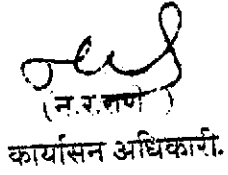 ( न. र. राणे )
कार्यासन अधिकारी.